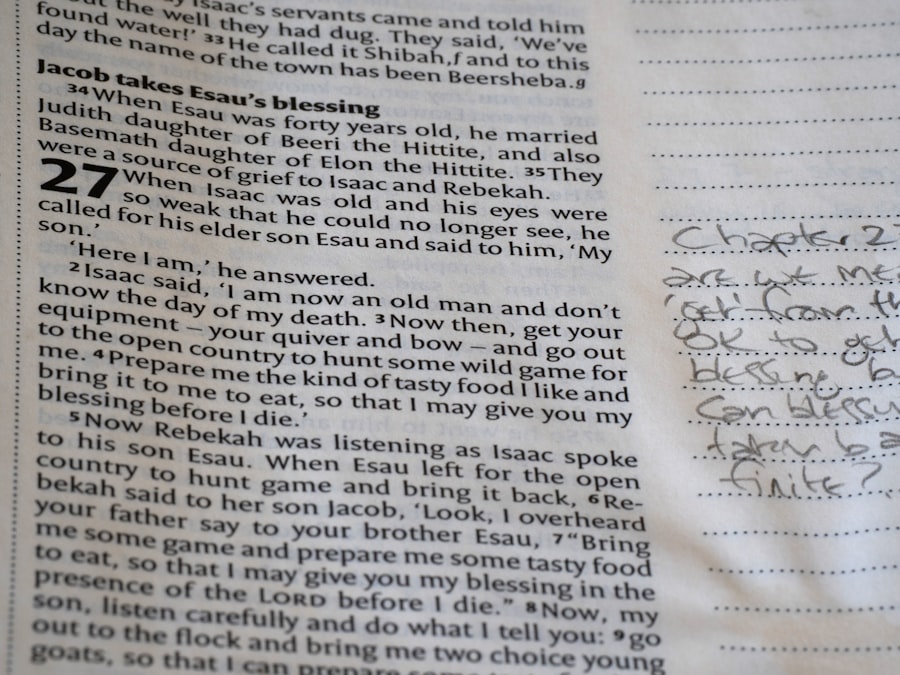 Isaac's servants came and told him
the well they had dug. They said, 'We've
found water!' 33 He called it Shibah,f and to this
day the name of the town has been Beersheba.g
Jacob takes Esau's blessing
34 When Esau was forty years old, he married
Judith daughter of Beeri the Hittite, and also
Basemath daughter of Elon the Hittite. 35 They
were a source of grief to Isaac and Rebekah.
27 When Isaac was old and his eyes were
so weak that he could no longer see, he
called for his elder son Esau and said to him, 'My
son.'
'Here I am,' he answered.
2 Isaac said, 'I am now an old man and don't
know the day of my death. 3 Now then, get your
equipment – your quiver and bow – and go out
to the open country to hunt some wild game for
me. 4 Prepare me the kind of tasty food I like and
bring it to me to eat, so that I may give you my
blessing before I die.'
5 Now Rebekah was listening as Isaac spoke
to his son Esau. When Esau left for the open
country to hunt game and bring it back, 6 Re-
bekah said to her son Jacob, 'Look, I overheard
your father say to your brother Esau, 7 "Bring
me some game and prepare me some tasty food
to eat, so that I may give you my blessing in the
presence of the LORD before I die." 8 Now, my
son, listen carefully and do what I tell you: 9 go
out to the flock and bring me two choice young
goats, so that I can prepare some
Chapter 2
are we
'get' from
OK to
blessing
Can
taken
finite?